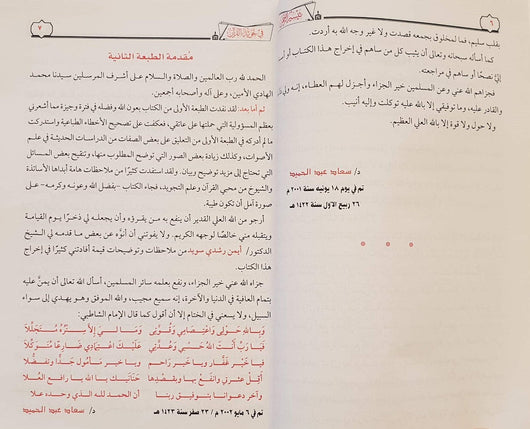 ٦
بقلب سليم، فما لمخلوق بجمعه قصدت ولا غير وجه الله به أردت.
كما أسأله سبحانه وتعالى أن يثيب كل من ساهم في إخراج هذا الكتاب أو أبدى
إليّ نصحًا أو ساهم في مراجعته.
فجزاهم الله عني وعن المسلمين خير الجزاء وأجزل لهم العطاء، إنه ولي
والقادر عليه، وما توفيقي إلا بالله عليه توكلت وإليه أنيب.
ولا حول ولا قوة إلا بالله العلي العظيم.
د/ سعاد عبد الحميد
تم في يوم ١٨ يونيه سنة ٢٠٠١ م
٢٦ ربيع الأول سنة ١٤٢٢ هـ
٧
مقدمة الطبعة الثانية
الحمد لله رب العالمين والصلاة والسلام على أشرف المرسلين سيدنا محمد
الهادي الأمين، وعلى آله وأصحابه أجمعين.
ثم أما بعد: لقد نفدت الطبعة الأولى من الكتاب بعون الله وفضله في فترة وجيزة مما أشعرني
بعظم المسؤولية التي حملتها على عاتقي، فعكفت على تصحيح الأخطاء الطباعية واستدركت
ما لم أدركه في الطبعة الأولى من التعليق على بعض الصفات من الدراسات الحديثة في علم
الأصوات، وكذلك زيادة بعض الصور التي توضح المطلوب منها، وتنقيح بعض المسائل
التي تحتاج إلى مزيد توضيح وبيان. ولقد استفدت كثيرًا من ملاحظات هامة أبداها الأساتذة
والشيوخ من محبي القرآن وعلم التجويد، فجاء الكتاب -بفضل الله وعونه وكرمه- في
صورة آمل أن تكون طيبة.
أرجو من الله العلي القدير أن ينفع به من يقرؤه وأن يجعله لي ذخرًا يوم القيامة
ويتقبله مني خالصًا لوجهه الكريم. ولا يفوتني أن أنوّه عن بعض ما قدمه لي الشيخ
الدكتور/ أيمن رشدي سويد من ملاحظات وتوضيحات قيمة أفادتني كثيرًا في إخراج
هذا الكتاب.
جزاه الله عني خير الجزاء، ونفع بعلمه سائر المسلمين، أسأل الله تعالى أن يمنّ عليه
بتمام العافية في الدنيا والآخرة، إنه سميع مجيب، والله الموفق وهو يهدي إلى سواء
السبيل، ولا يسعني في الختام إلا أن أقول كما قال الإمام الشاطبي:
وبالله حولي واعتصامي وقوتي ومالي إلا ستره متجللا
فيا رب أنت الله حسبي وعدتي عليك اعتمادي ضارعا متوكلا
ويا خير غفار ويا خير راحم ويا خير مأمول جدا وتفضلا
أقل عثرتي وانفع بها وبقصدها حنانيك يا الله يا رافع العلا
وآخر دعوانا بتوفيق ربنا أن الحمد لله الذي وحده علا
تم في ٦ مايو ٢٠٠٢ م / ٢٣ صفر سنة ١٤٢٣ هـ
د/ سعاد عبد الحميد